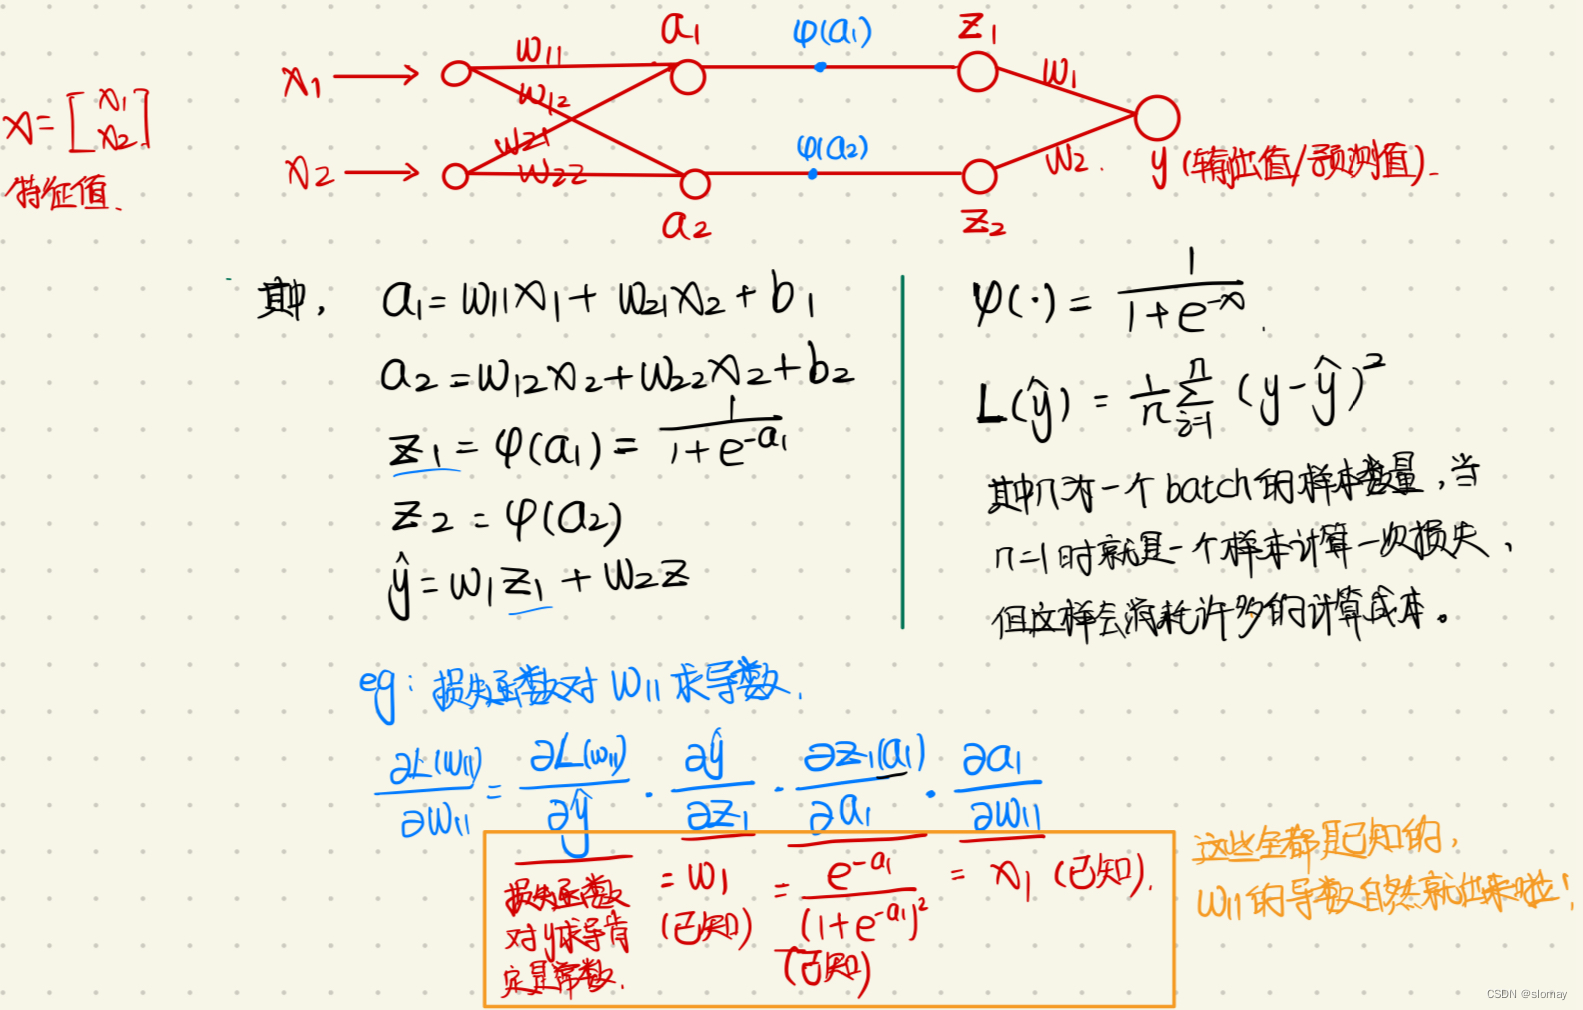 x = [x₁ x₂]
特征值.
x₁ →
x₂ →
w₁₁
w₁₂
w₂₁
w₂₂
a₁
a₂
φ(a₁)
φ(a₂)
z₁
z₂
w₁
w₂.
y (输出值/预测值).
其中, a₁ = w₁₁x₁ + w₂₁x₂ + b₁
a₂ = w₁₂x₂ + w₂₂x₂ + b₂
z₁ = φ(a₁) = 1/(1+e^(-a₁))
z₂ = φ(a₂)
ŷ = w₁z₁ + w₂z
φ(·) = 1/(1+e^(-x)).
L(ŷ) = 1/n Σ_{i=1}^{n} (y-ŷ)²
其中n为一个batch的样本数量,当
n=1时就是一个样本计算一次损失,
但这样会消耗许多的计算成本。
eg: 损失函数对 w₁₁ 求导数.
∂L(w₁₁)/∂w₁₁ = ∂L(w₁₁)/∂ŷ · ∂ŷ/∂z₁ · ∂z₁(a₁)/∂a₁ · ∂a₁/∂w₁₁
损失函数
对y求导肯
定是常数.
= w₁
(已知)
= e^(-a₁)/(1+e^(-a₁))²
(已知)
= x₁ (已知).
这些全都是已知的,
w₁₁的导数自然就出来啦!
CSDN @slomay